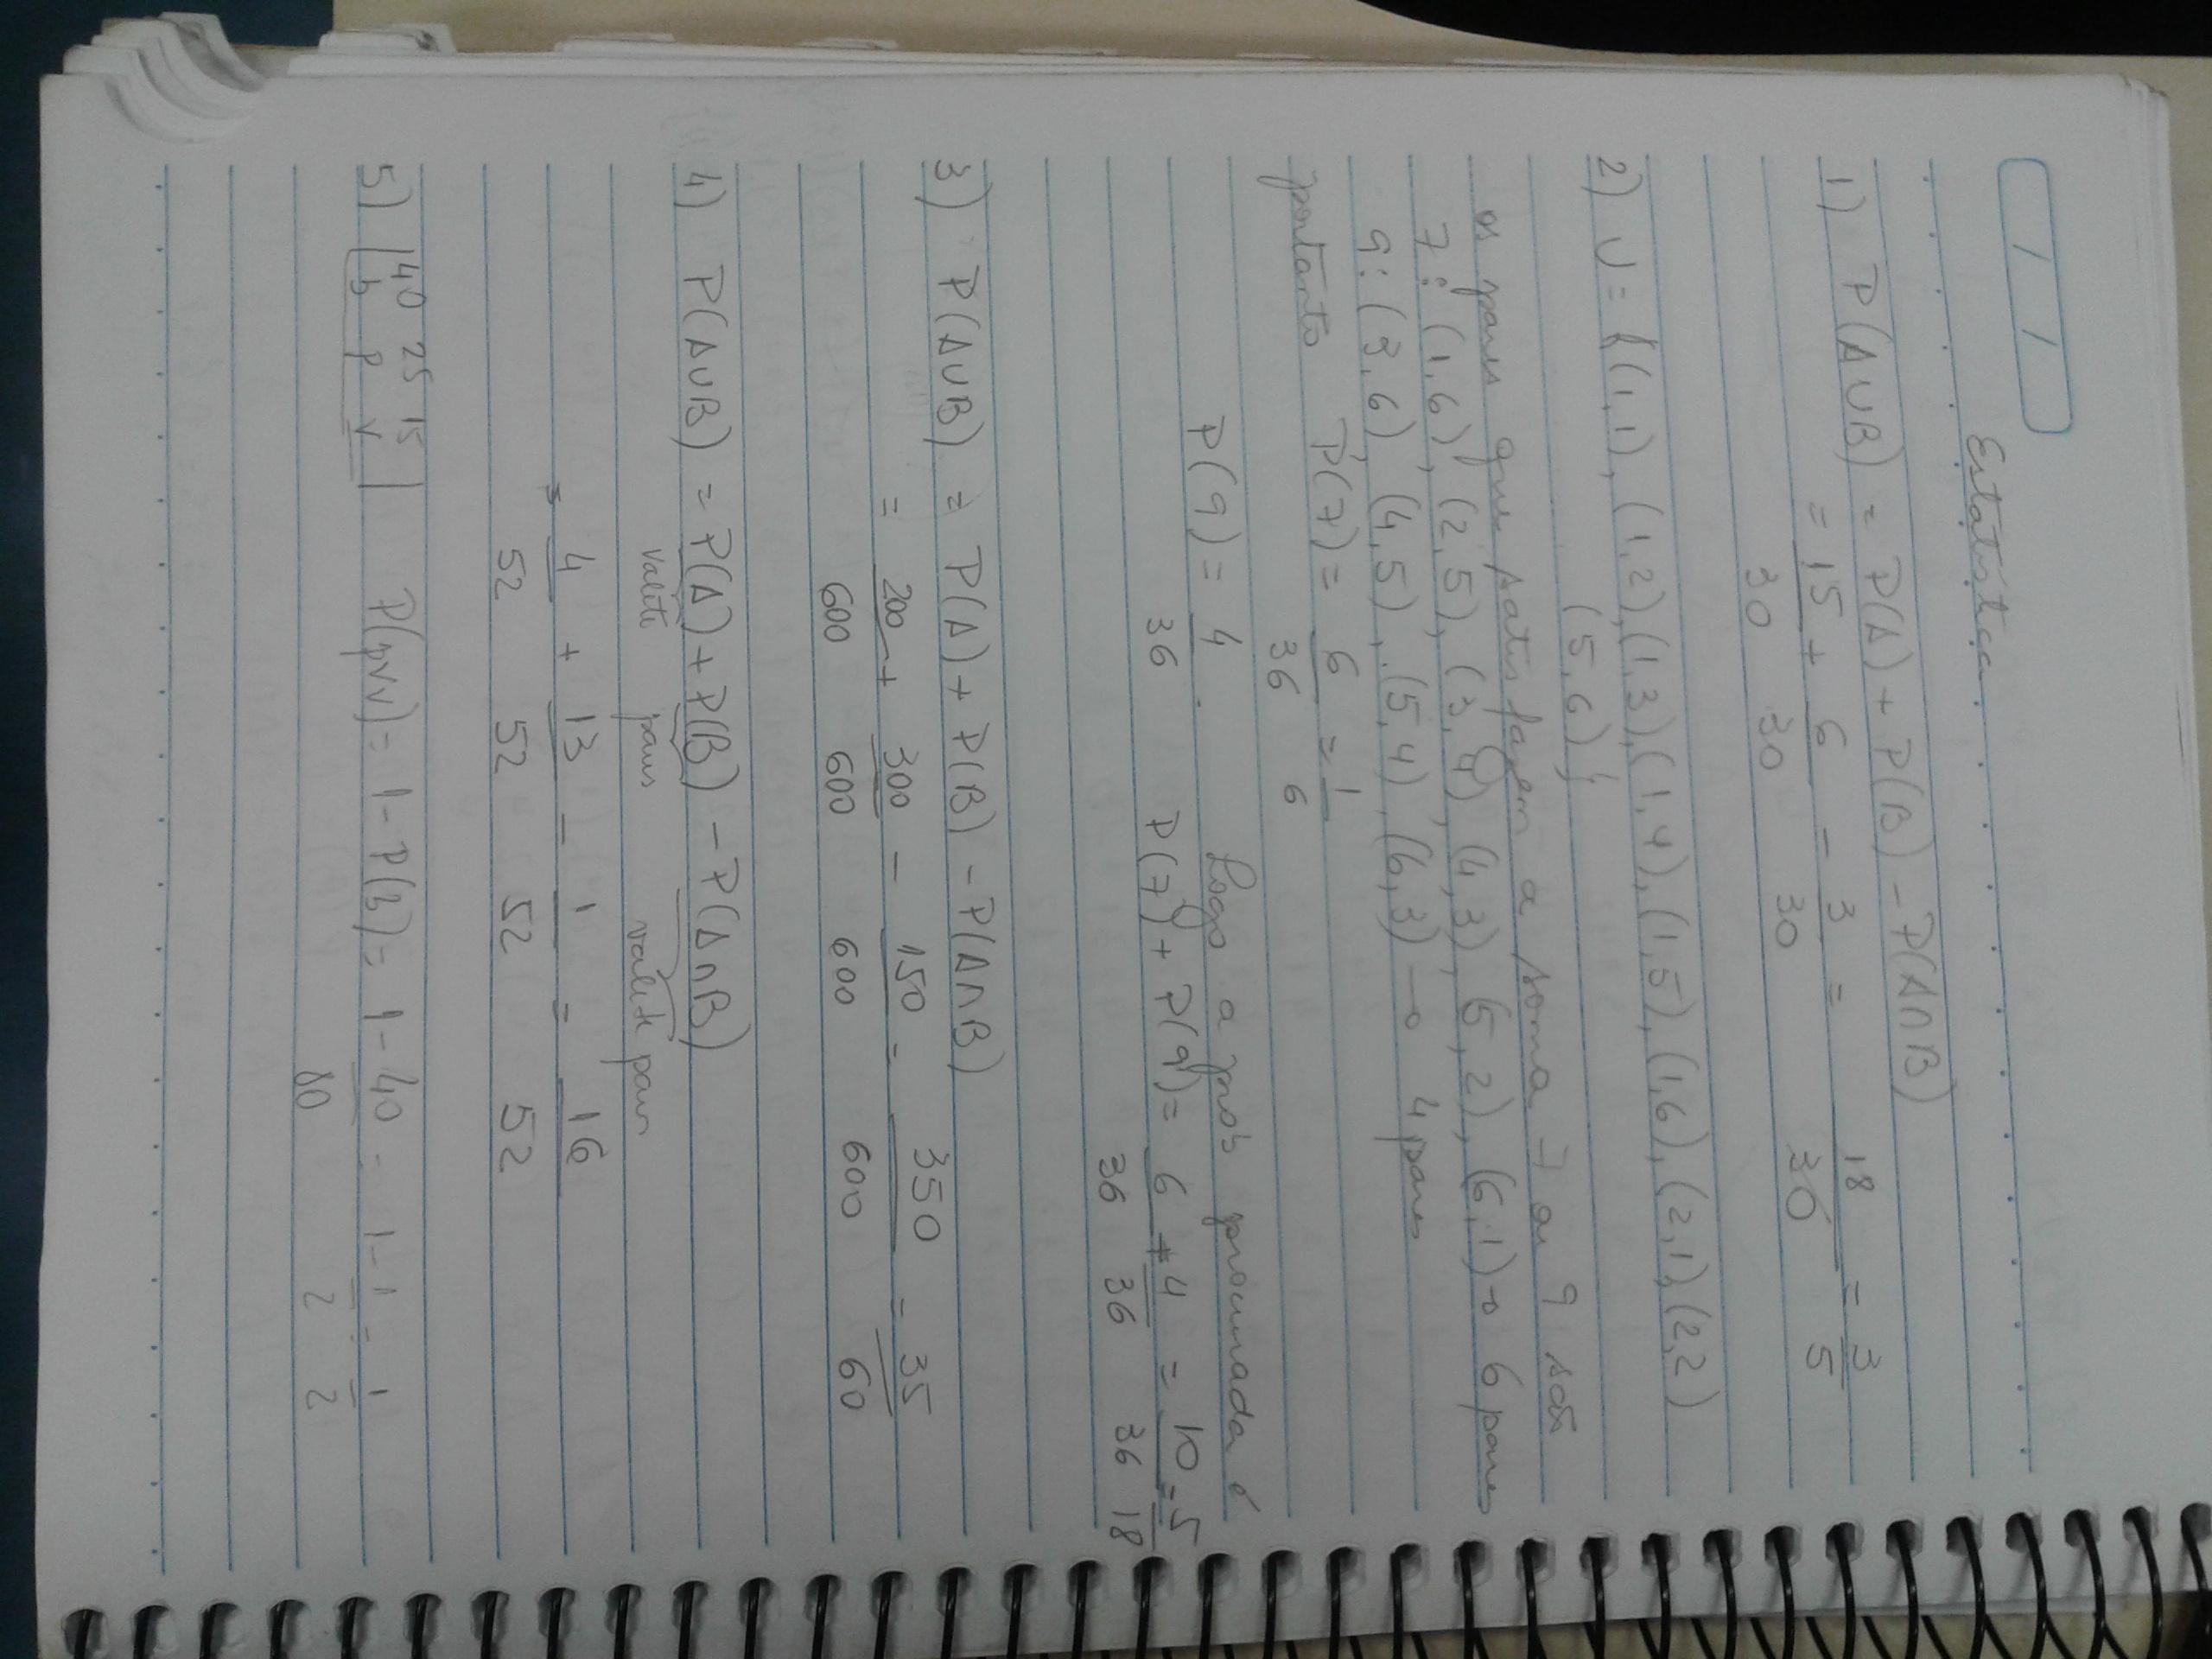 / /
Estatística
1) P(A∪B) = P(A) + P(B) - P(A∩B)
= 15/30 + 6/30 - 3/30 = 18/30 = 3/5
2) U = {(1,1), (1,2), (1,3), (1,4), (1,5), (1,6), (2,1), (2,2)
(5,6)}
os pares que satisfazem a soma 7 ou 9 são
7: (1,6), (2,5), (3,4), (4,3), (5,2), (6,1) → 6 pares
9: (3,6), (4,5), (5,4), (6,3) → 4 pares
portanto P(7) = 6/36 = 1/6
P(9) = 4/36. Logo a prob procurada é
P(7) + P(9) = 6/36 + 4/36 = 10/36 = 5/18
3) P(A∪B) = P(A) + P(B) - P(A∩B)
= 200/600 + 300/600 - 150/600 = 350/600 = 35/60
4) P(A∪B) = P(A) + P(B) - P(A∩B)
valete paus valete paus
= 4/52 + 13/52 - 1/52 = 16/52
5) 40 25 15
b p v P(p∨v) = 1 - P(B) = 1 - 40/80 = 1 - 1/2 = 1/2